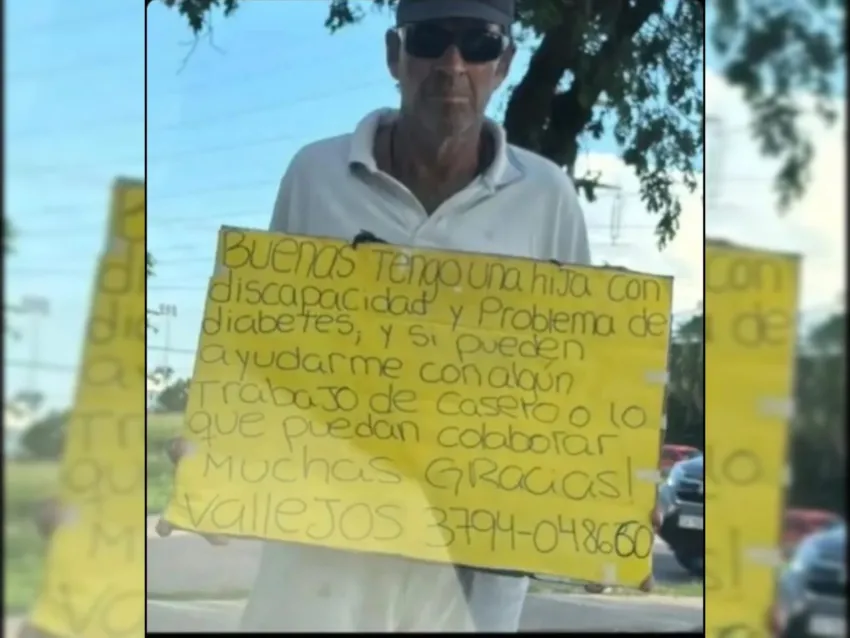 Buenas Tengo una hija con
discapacidad y Problema de
diabetes, y si pueden
ayudarme con algún
Trabajo de casero o lo
que puedan colaborar
Muchas Gracias!
Vallejos 3794-048650